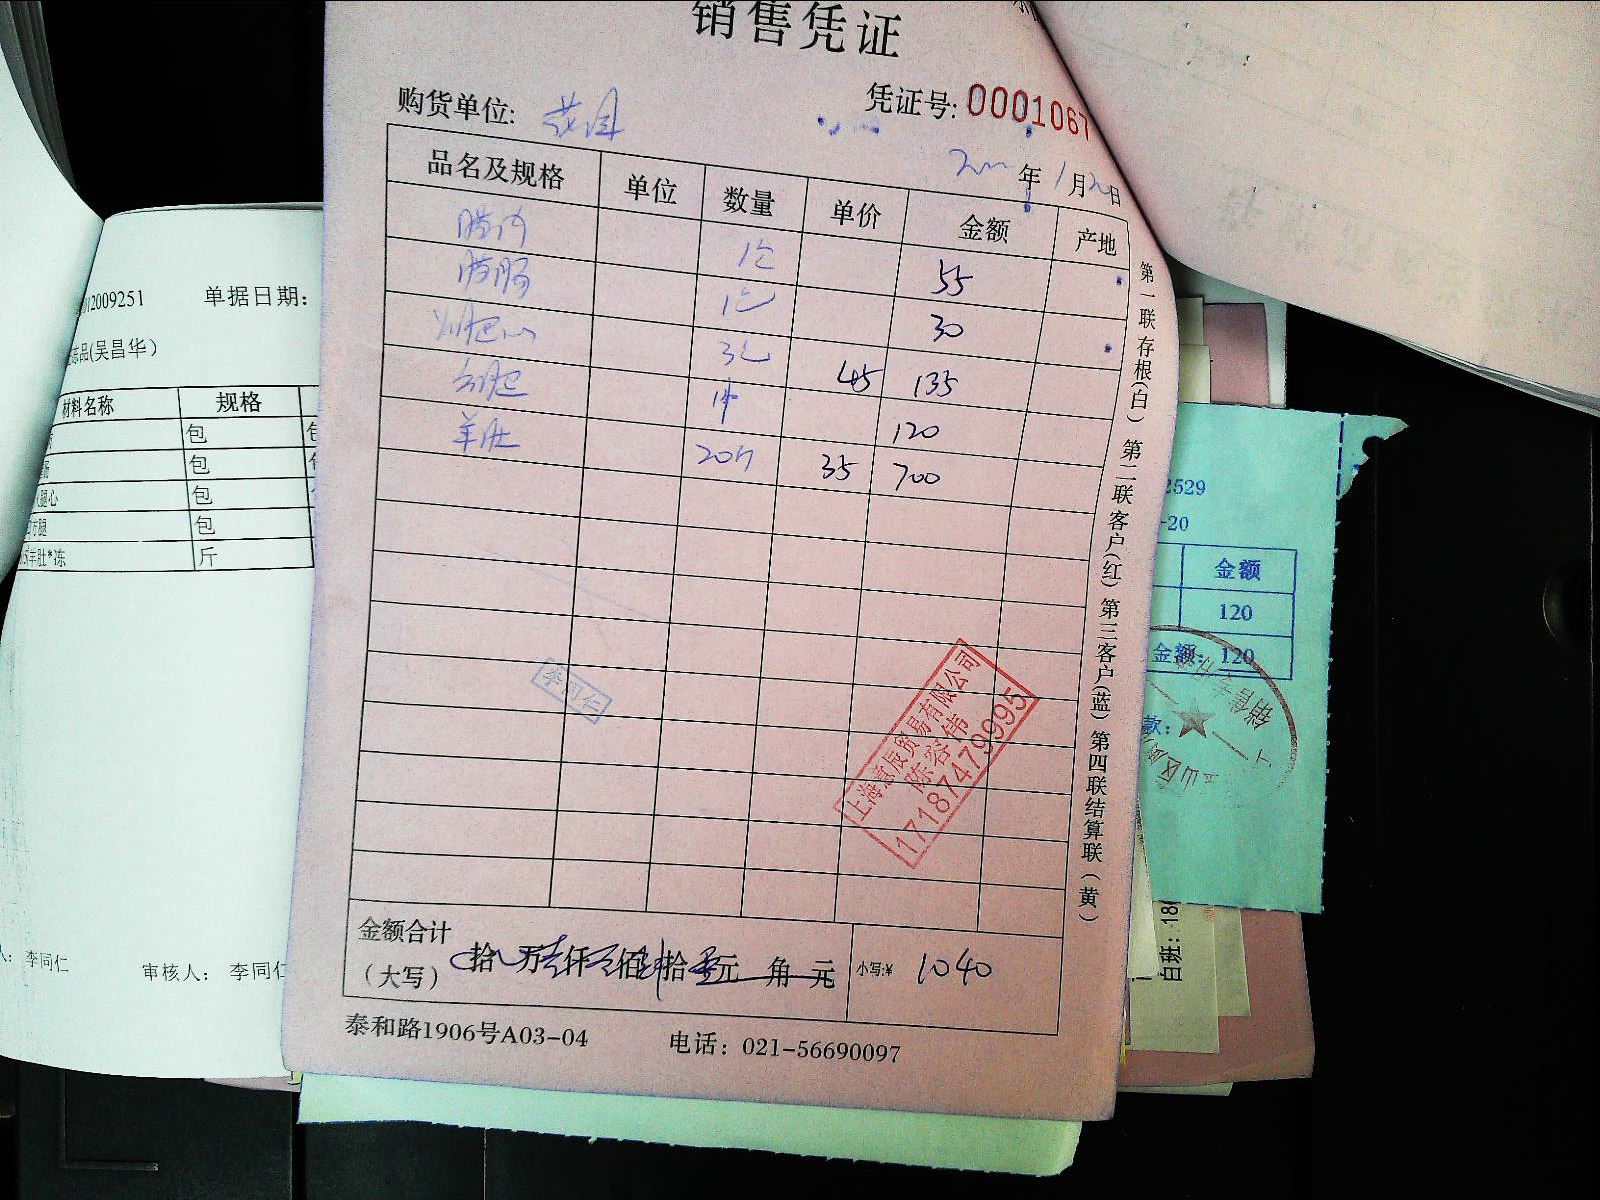 销售凭证
购货单位:
凭证号: 0001067
年 1 月 20 日
品名及规格 单位 数量 单价 金额 产地
55
30
45 135
120
羊肚 20斤 35 700
李同仁
上海意辰贸易有限公司
陈容伟
17187479995
金额合计
(大写) 拾 万 仟 佰 拾 元 角 元 小写:¥ 1040
泰和路1906号A03-04 电话: 021-56690097
第一联存根(白) 第二联客户(红) 第三客户(蓝) 第四联结算联(黄)
2009251 单据日期:
品(吴昌华)
材料名称 规格
包
包
腿心 包
方腿 包
羊肚*冻 斤
李同仁 审核人: 李同仁
2529
-20
金额
120
金额: 120
款:
白班: 18